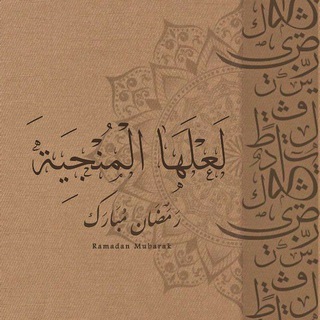 لَعَلَّهَا الْمُنْجِيَةُ
رَمَضَان مُبَارَك
Ramadan Mubarak